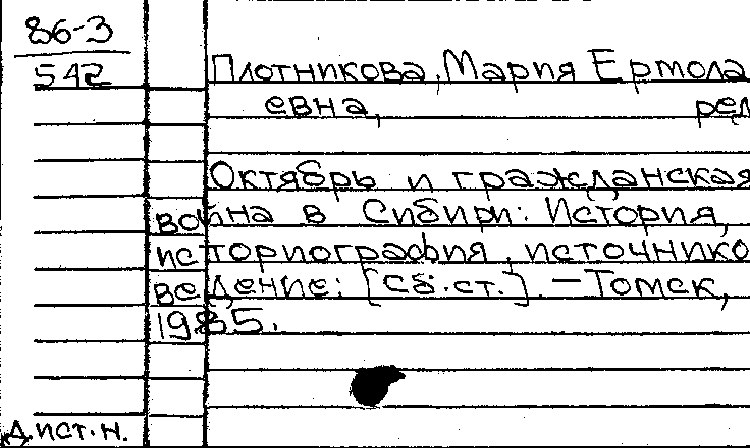 86-3
542
Плотникова, Мария Ермола
евна, ред
Октябрь и гражданская
война в Сибири: История,
историография, источнико
ведение: [Сб. ст.]. — Томск,
1985.
Д. ист. н.